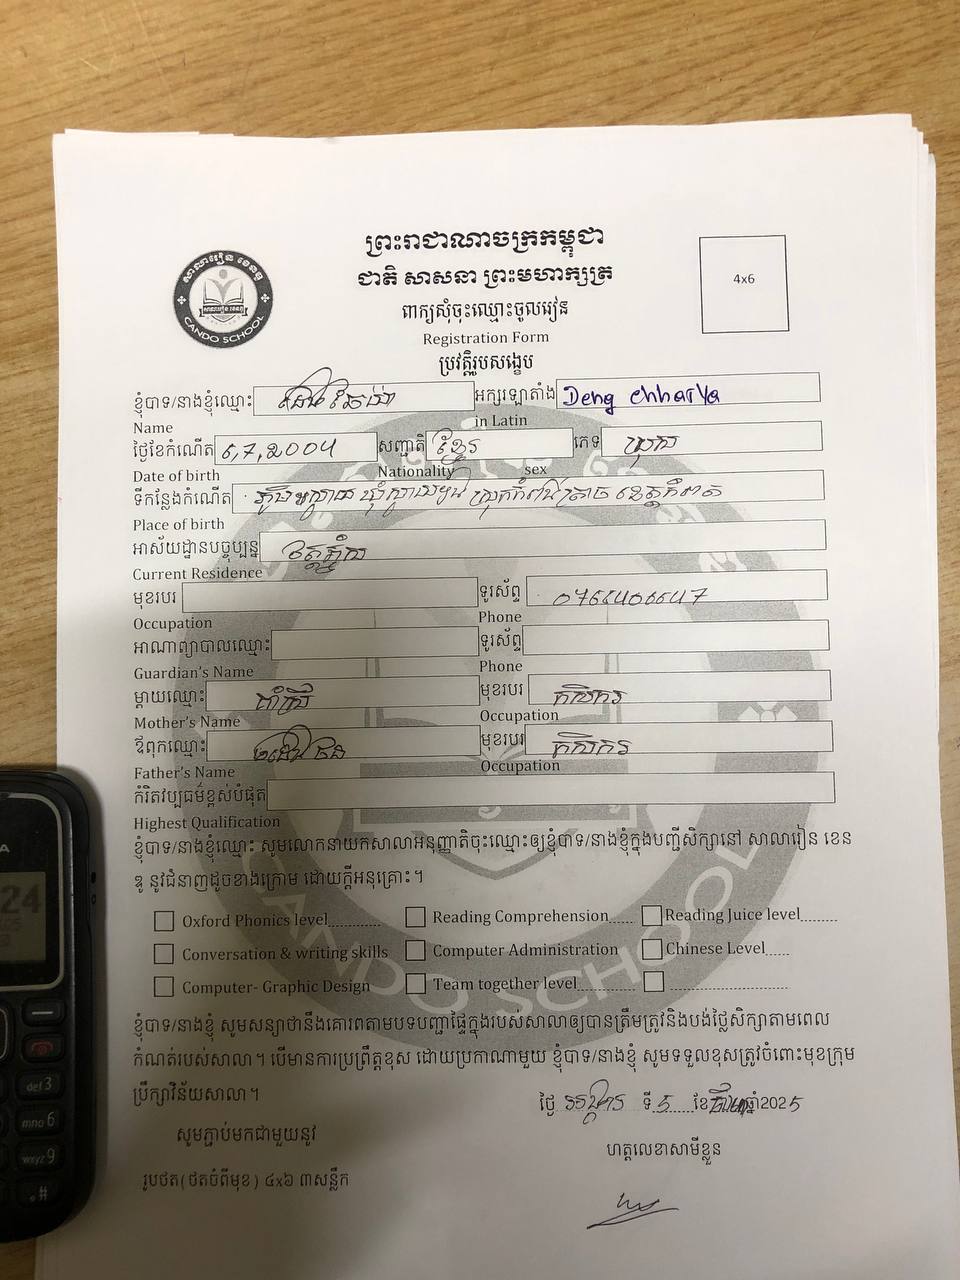 ព្រះរាជាណាចក្រកម្ពុជា
ជាតិ សាសនា ព្រះមហាក្សត្រ
ពាក្យសុំចុះឈ្មោះចូលរៀន
Registration Form
ប្រវត្តិរូបសង្ខេប
សាលារៀន ខេនឌូ
CANDO SCHOOL
4x6
ខ្ញុំបាទ/នាងខ្ញុំឈ្មោះ អក្សរឡាតាំង Deng chharYa
Name in Latin
ថ្ងៃខែកំណើត 6,7,2004 សញ្ជាតិ ខ្មែរ ភេទ ប្រុស
Date of birth Nationality sex
ទីកន្លែងកំណើត
Place of birth
អាស័យដ្ឋានបច្ចុប្បន្ន
Current Residence
មុខរបរ ទូរស័ព្ទ
Occupation Phone
អាណាព្យាបាលឈ្មោះ ទូរស័ព្ទ
Guardian's Name Phone
ម្តាយឈ្មោះ មុខរបរ កសិករ
Mother's Name Occupation
ឪពុកឈ្មោះ មុខរបរ កសិករ
Father's Name Occupation
កំរិតវប្បធម៌ខ្ពស់បំផុត
Highest Qualification
ខ្ញុំបាទ/នាងខ្ញុំឈ្មោះ សូមលោកនាយកសាលាអនុញ្ញាតិចុះឈ្មោះឲ្យខ្ញុំបាទ/នាងខ្ញុំក្នុងបញ្ជីសិក្សានៅ សាលារៀន ខេន
ឌូ នូវជំនាញដូចខាងក្រោម ដោយក្តីអនុគ្រោះ។
Oxford Phonics level Reading Comprehension Reading Juice level
Conversation & writing skills Computer Administration Chinese Level
Computer- Graphic Design Team together level
ខ្ញុំបាទ/នាងខ្ញុំ សូមសន្យាថានឹងគោរពតាមបទបញ្ជាផ្ទៃក្នុងរបស់សាលាឲ្យបានត្រឹមត្រូវនិងបង់ថ្លៃសិក្សាតាមពេល
កំណត់របស់សាលា។ បើមានការប្រព្រឹត្តខុស ដោយប្រការណាមួយ ខ្ញុំបាទ/នាងខ្ញុំ សូមទទួលខុសត្រូវចំពោះមុខក្រុម
ប្រឹក្សាវិន័យសាលា។
ថ្ងៃ អង្គារ ទី 5 ខែ ឆ្នាំ2025
សូមភ្ជាប់មកជាមួយនូវ
ហត្ថលេខាសាមីខ្លួន
រូបថត(ថតចំពីមុខ) ៤x៦ ៣សន្លឹក
CANDO SCHOOL
24
def 3
mno 6
wxyz 9
#